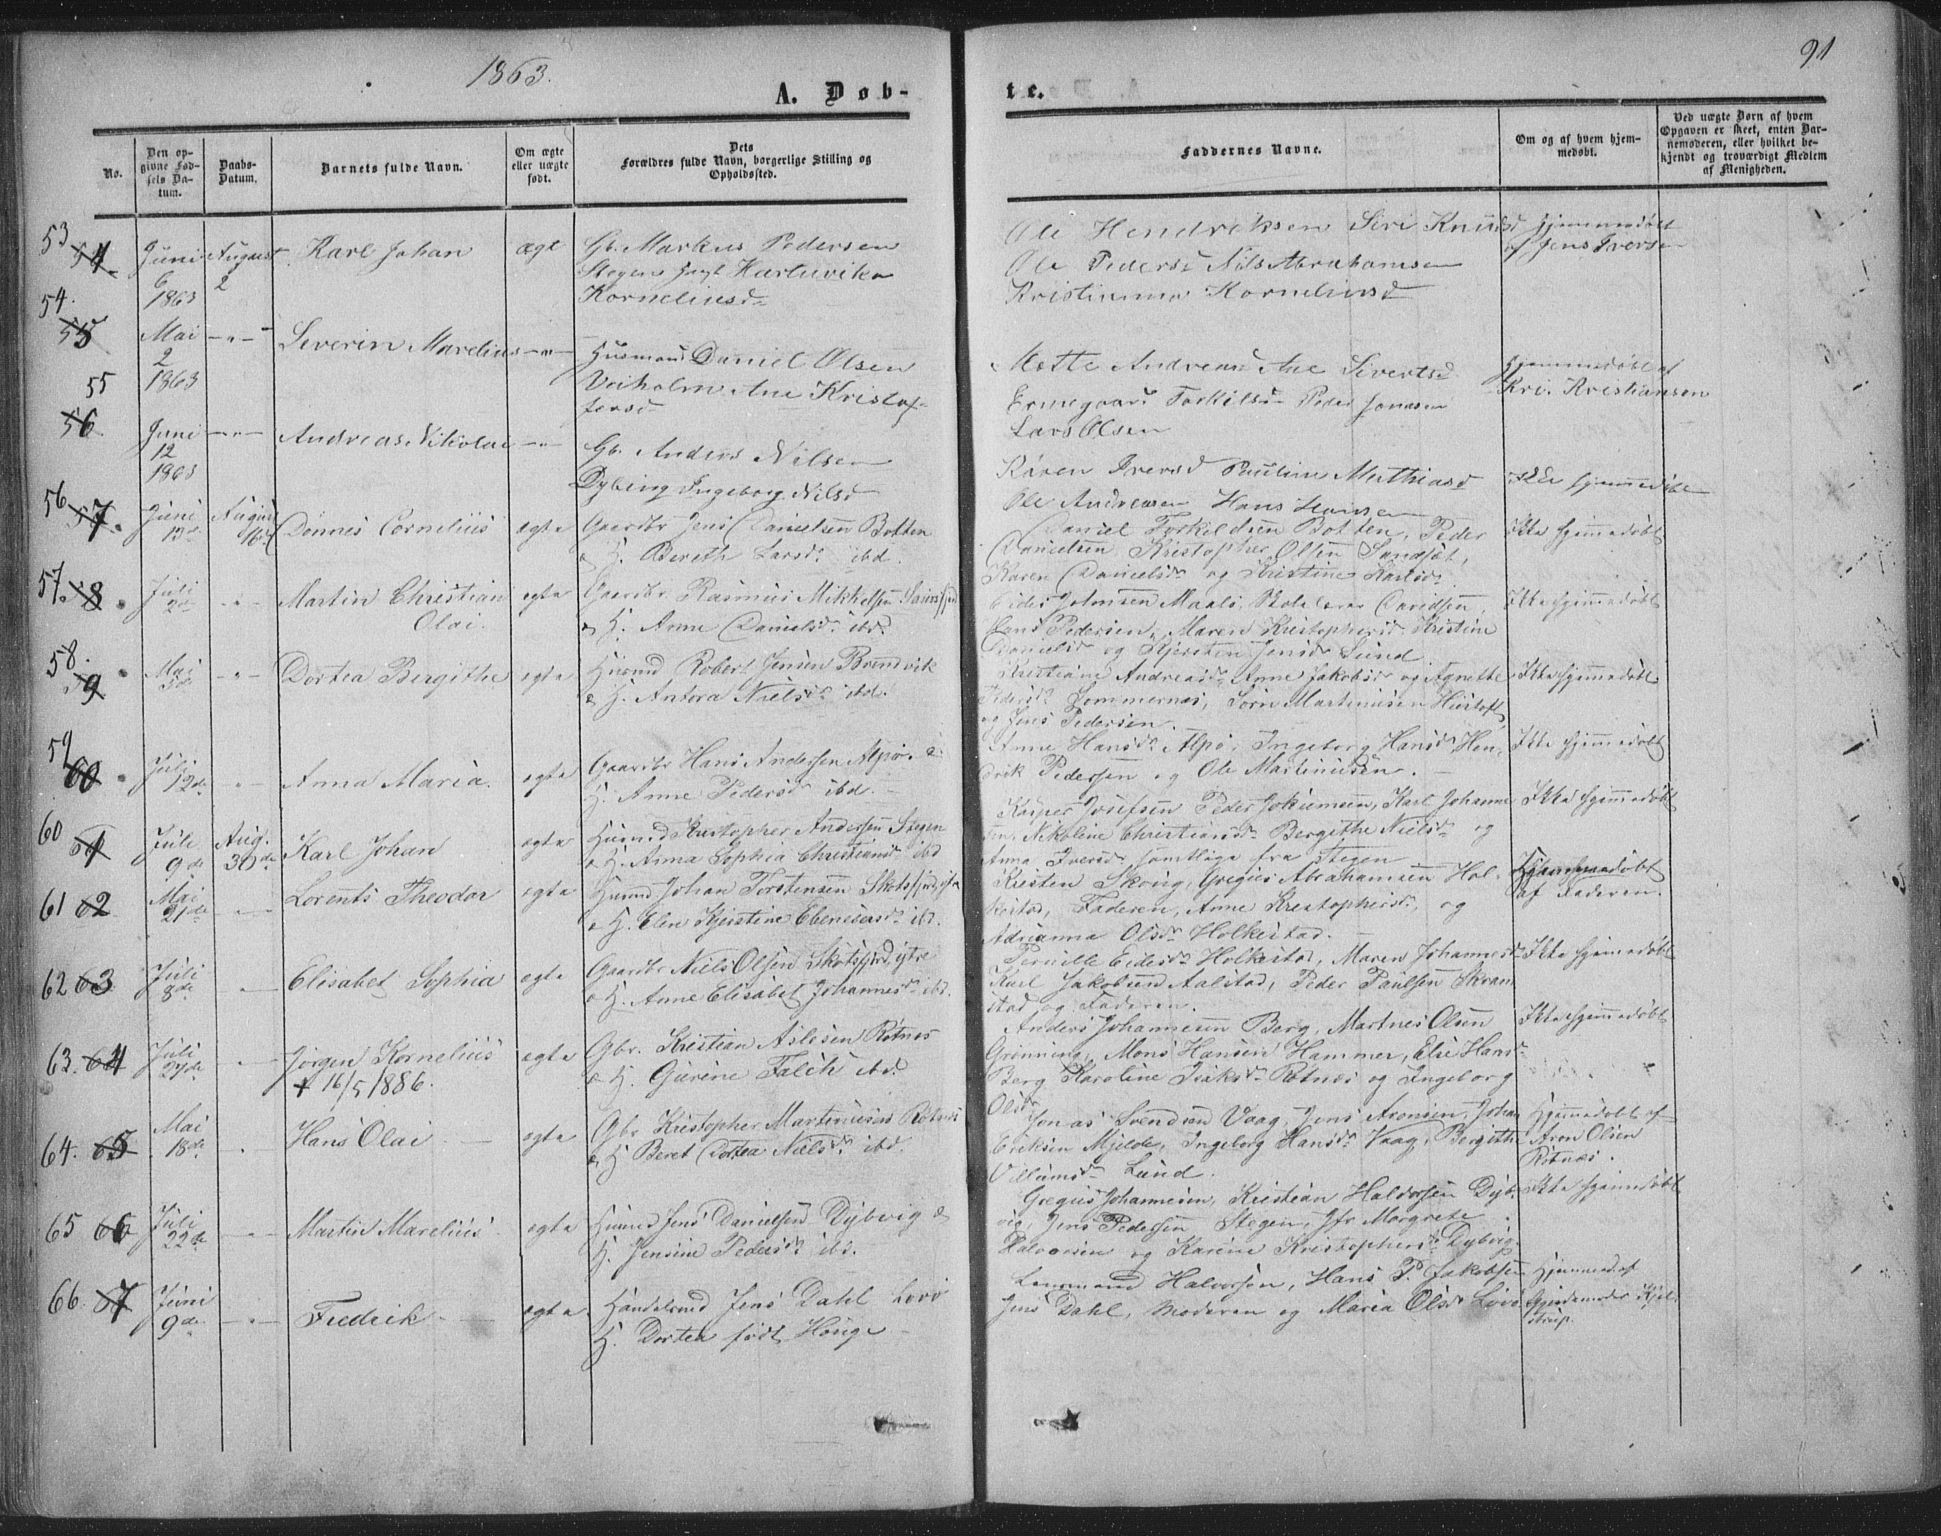 1863.
91
A. Døb-
te.
No.
Den op-
givne Fød-
sels Da-
tum.
Daabs-
Datum.
Barnets fulde Navn.
Om ægte
eller uægte
født.
Dets
Forældres fulde Navn, borgerlige Stilling og
Opholdssted.
Faddernes Navne.
Om og af hvem hjem-
medøbt.
Ved uægte Børn af hvem
Opgaven er skeet, enten Bar-
nemoderen, eller hvilket be-
kjendt og troværdigt Medlem
af Menigheden.
53
54
Juni
6
1863
August
2
Karl Johan
ægt
Gb. Markus Pedersen
Stegen Hartuvika
Korneliusd
Ole Hendriksen Siri Knudsd
Ole Pedersd Nils Abrahamsen
Kristianna Korneliusd
Hjemmedøbt
af Jens Iversen
54.
55
Mai
2
1863
-"-
Severin Marelius
-"-
Husmand Daniel Olsen
Veiholm Ane Kristof-
fersd
Mette Andreasd Ane Sivertsd
Ermegaard Torkilsd Peder Jonasen
Lars Olsen
Hjemmedøbt af
Kri. Kristiansen
55
56
Juni
12
1863
-"-
Andreas Nikolai
-"-
Gb. Anders Nilsen
Dybing Ingeborg Nilsd
Karen Iversd Pauline Mathiasd
Ole Andreasen Hans Hansen
Ikke hjemmedøbt
56
57.
Juni
August
16de
Dønnes Cornelius
ægte
Gaardbr Jens Danielsen Botten
& H. Bereth Larsdr ibd.
Daniel Torkeldsen Botten, Peder
Danielsen, Kristopher Olsen Sandsøt,
Karen Danielsdr og Kristine Larsdr.
Ikke hjemmedøbt
57.
58.
Juli
"
Martin Christian
Olai.
ægte
Gaardbr Rasmus Mikkelsen
& H. Anne Danielsdr ibd.
Johnsen Maalø, Skolelærer Davidsen,
Hans Pedersen, Maren Kristophersdr Kristine
Danielsdr og Kjersten Jensdr Sund.
Ikke hjemmedøbt
58.
59
Mai
"
Dortea Bergithe
ægte
Husmd Robert Jensen Brendvik
& H. Antora Nielsdr ibd.
Kristiane Andreasdr Anne Jakobsdr og Agnette
Pedersdr Sommernes, Sørn Martinusen Hustoft,
og Jens Pedersen.
Ikke hjemmedøbt
59
60
Juli
12de
"
Anna Maria.
ægte
Gaardbr Hans Andersen Alpøe &
H. Anne Pedersdr ibd.
Anne Hansdr Alpø, Ingeborg Hansdr Hen-
drik Pedersen og Ole Martinusen.
Ikke hjemmedøbt
60
61
Juli
9de
Aug.
30de
Karl Johan
ægte
Husmd Kristopher Andersen Stegen
& H. Anna Sophia Christiansdr ibd
Kasper Josefsen Peder Jokumsen, Karl Johanne-
sen, Nikoline Christiansdr Bergithe Nielsdr og
Anna Iversdr samtlige fra Stegen
Ikke hjemmedøbt
61
62
Mai
21de
"
Lorents Theodor
ægte
Husmd Johan Torstensen Skotsfjord ytre
& H. Elen Kjerstine Ebenesersdr ibd.
Kristen Skovig, Gregus Abrahamsen Hol-
kestad, Faderen, Anne Kristophersdr, og
Adrianna Olsdr Holkestad.
Hjemmedøbt
af Faderen.
62
63
Juli
8de
"
Elisabet Sophia
ægte
Gaardbr Niels Olsen Skotsfjord ytre
& H. Anne Elisabet Johannesdr ibd.
Pernille Eidesdr Holkestad, Maren Johannesdr
Karl Jakobsen Aalstad, Peder Paulsen Skran-
stad og Faderen.
Ikke hjemmedøbt
63.
64
Juli
27de
"
Jørgen Kornelius
+ 16/5 1886.
ægte
Gbr. Kristian Aslesen Rotnæs
& H. Gurine Falch ibd.
Anders Johannesen Berg, Martnes Olsen
Grønning, Mons Hansen Hammer, Else Hansdr
Berg Karoline Isaksdr Rotnæs og Ingeborg
Olsdr
Ikke hjemmedøbt
64.
65
Mai
18de
"
Hans Olai
ægte
Gbr Kristopher Martinusen Rotnæs
& H Beret Dortea Nielsdr ibd.
Jonas Svendsen Vaag, Jens Aronsen, Johan
Eriksen Mjelde, Ingeborg Hansdr Vaag, Bergithe
Villumsdr Lund.
Hjemmedøbt af
Aron Olsen
Rotnæs.
65
66
Juli
22de
"
Martin Marelius
ægte
Husmd Jens Danielsen Dybvig &
H. Jensine Pedersdr ibd.
Gregus Johannesen, Kristian Haldorsen Dyb-
vig, Jens Pedersen Stegen, Jfr Margrete
Halvorsen og Karine Kristophersdr Dybvig.
Ikke hjemmedøbt
66.
67
Juni
9de
"
Fredrik
ægte
Handelsmd Jens Dahl Løvø
H. Dortea født Houge
Lensmand Halvorsen, Hans P. Jakobsen
Jens Dahl, Moderen og Maria Olsdr Løvø
Hjemmed af
Gjordemoder Kjel-
strup.